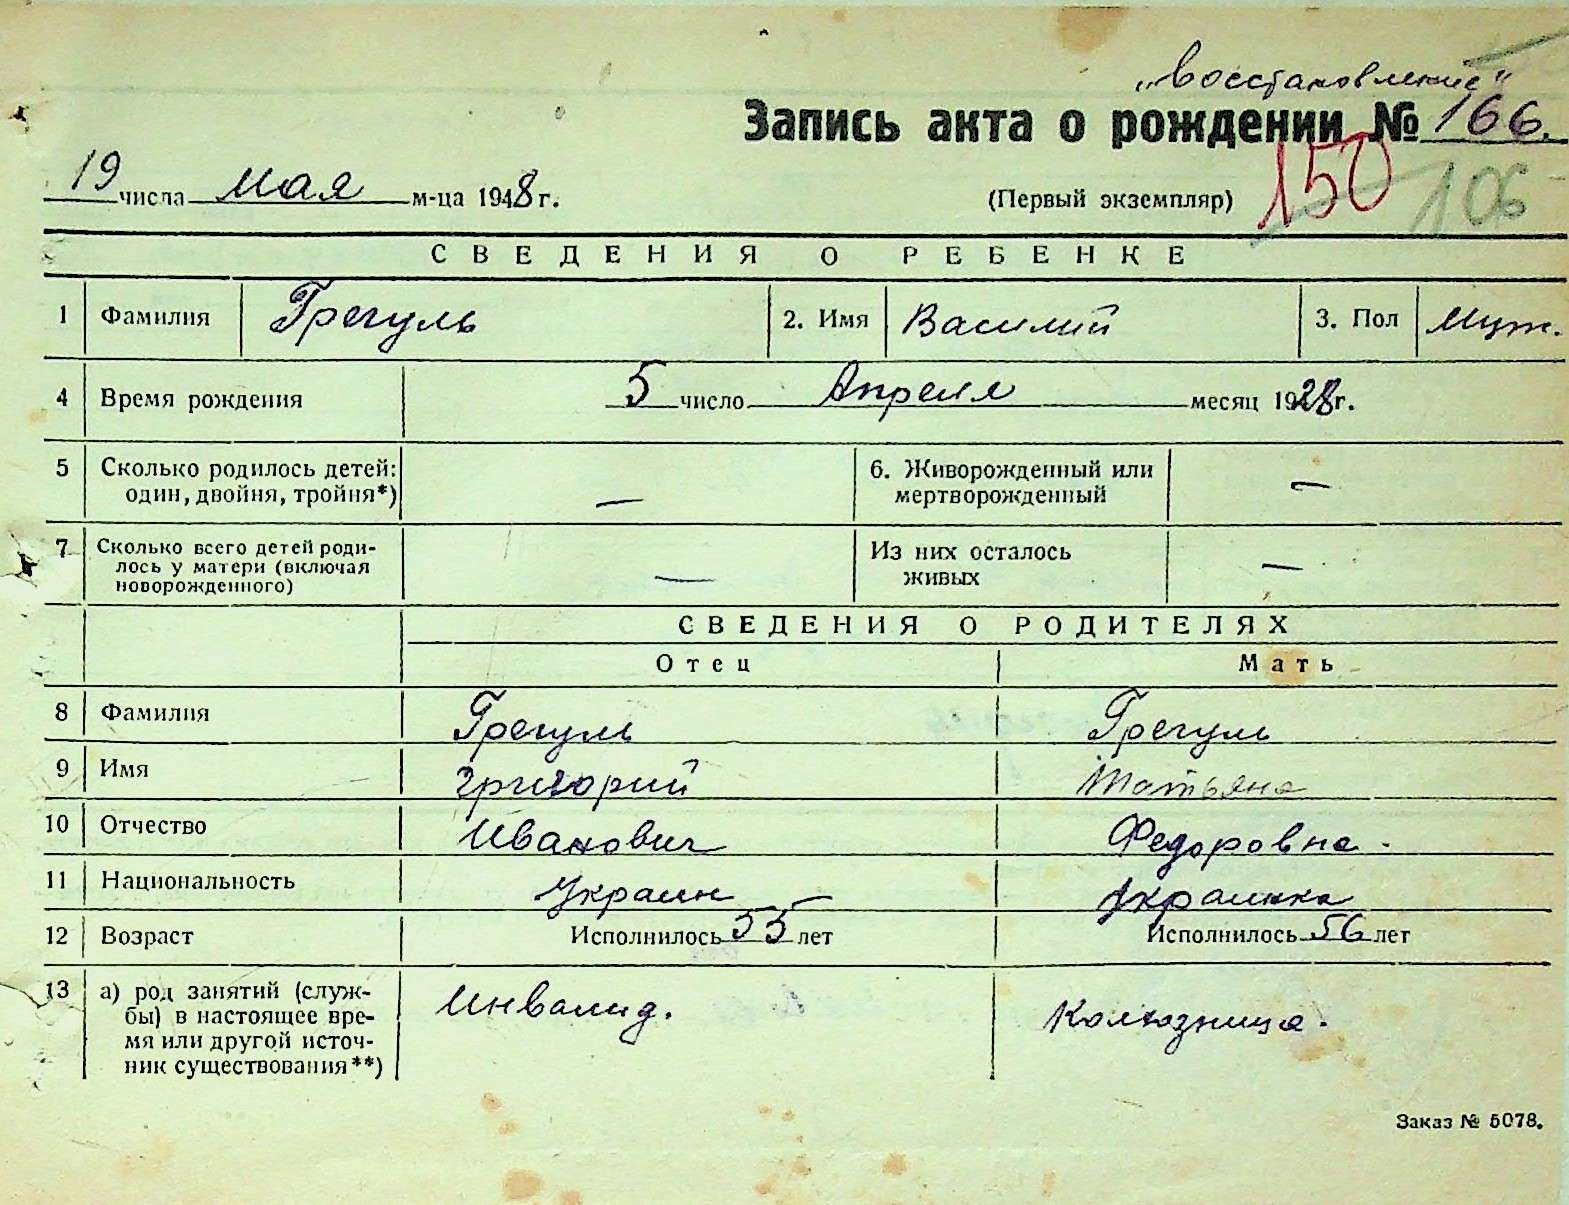 „Восстановление"
Запись акта о рождении № 166.
19 числа мая м-ца 1948 г. (Первый экземпляр) 150 106
СВЕДЕНИЯ О РЕБЕНКЕ
1 Фамилия Грегуль 2. Имя Василий 3. Пол Муж.
4 Время рождения 5 число Апреля месяц 1928 г.
5 Сколько родилось детей: один, двойня, тройня*) — 6. Живорожденный или мертворожденный —
7 Сколько всего детей родилось у матери (включая новорожденного) — Из них осталось живых —
СВЕДЕНИЯ О РОДИТЕЛЯХ
Отец Мать
8 Фамилия Грегуль Грегуль
9 Имя Григорий Татьяна
10 Отчество Иванович Федоровна.
11 Национальность Украин Украинка
12 Возраст Исполнилось 55 лет Исполнилось 56 лет
13 а) род занятий (служ- Инвалид. Колхозница.
бы) в настоящее вре-
мя или другой источ-
ник существования**)
Заказ № 5078.